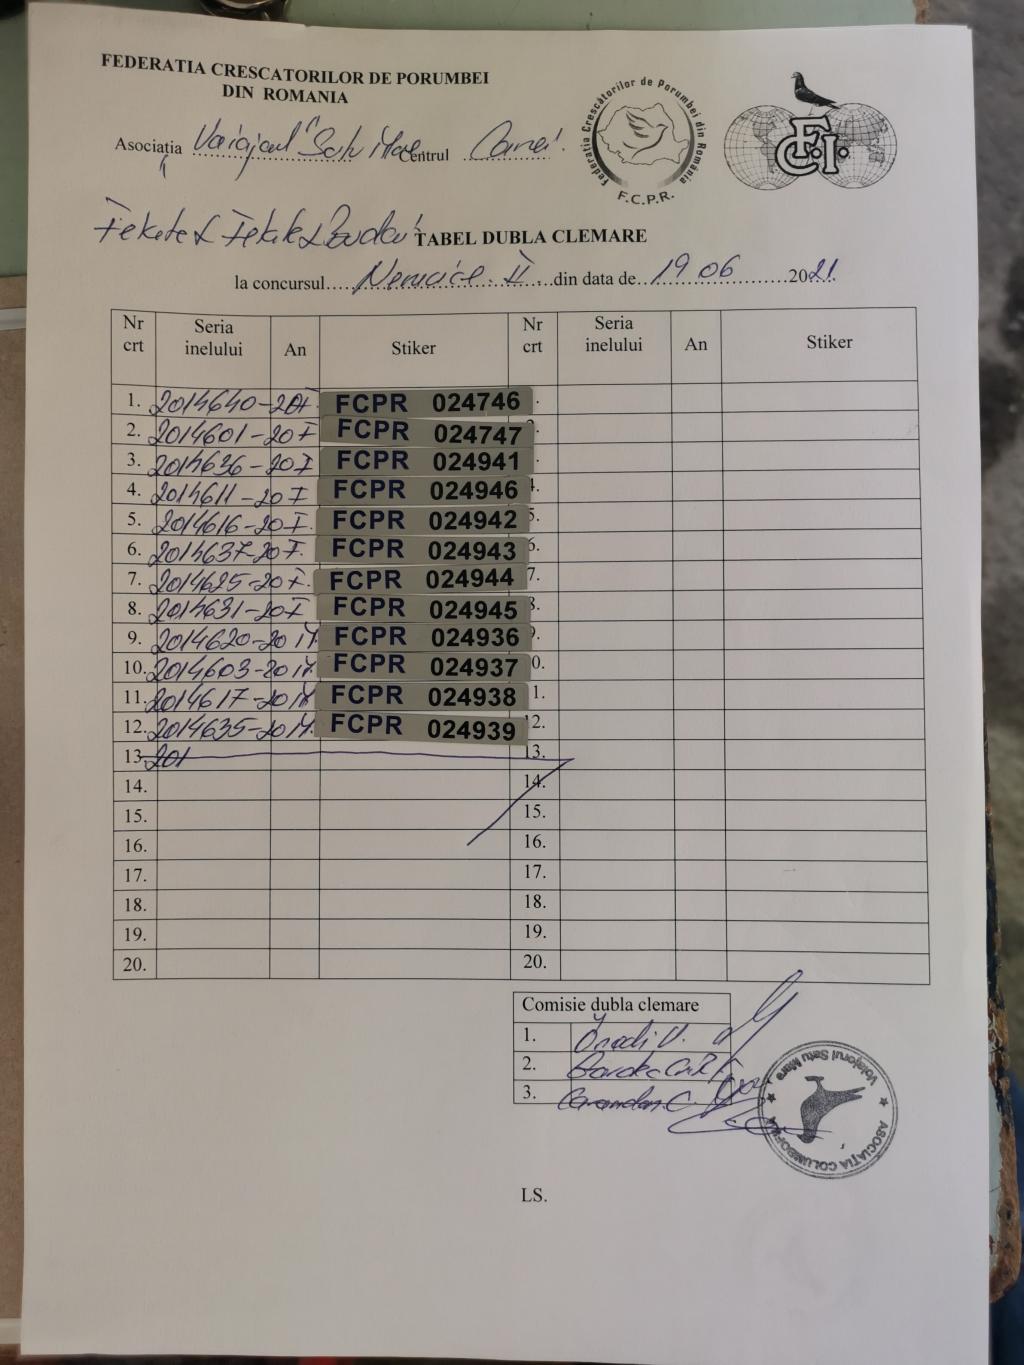 FEDERATIA CRESCATORILOR DE PORUMBEI
DIN ROMANIA
Asociația Voiajorul Satu Mare Centrul Carei
Federația Crescătorilor de Porumbei din România
F.C.P.R.
F.C.I.
Fekete & Fekete &
TABEL DUBLA CLEMARE
la concursul Nemcice II din data de 19 06 2021
Nr crt Seria inelului An Stiker Nr crt Seria inelului An Stiker
1. 2014640-20 F FCPR 024746
2. 2014601-20 F FCPR 024747
3. 2014636-20 F FCPR 024941
4. 2014611-20 F FCPR 024946 4.
5. 2014616-20 F. FCPR 024942 5.
6. 2014637-20 F. FCPR 024943 6.
7. 2014625-20 F. FCPR 024944 7.
8. 2014631-20 F FCPR 024945 8.
9. 2014620-20 M FCPR 024936 9.
10. 2014603-20 M FCPR 024937 0.
11. 2014617-20 M FCPR 024938 1.
12. 2014635-20 M. FCPR 024939 12.
13. 201 13.
14. 14.
15. 15.
16. 16.
17. 17.
18. 18.
19. 19.
20. 20.
Comisie dubla clemare
1.
2.
3.
ASOCIAȚIA COLUMBOFILA
Voiajorul Satu Mare
LS.